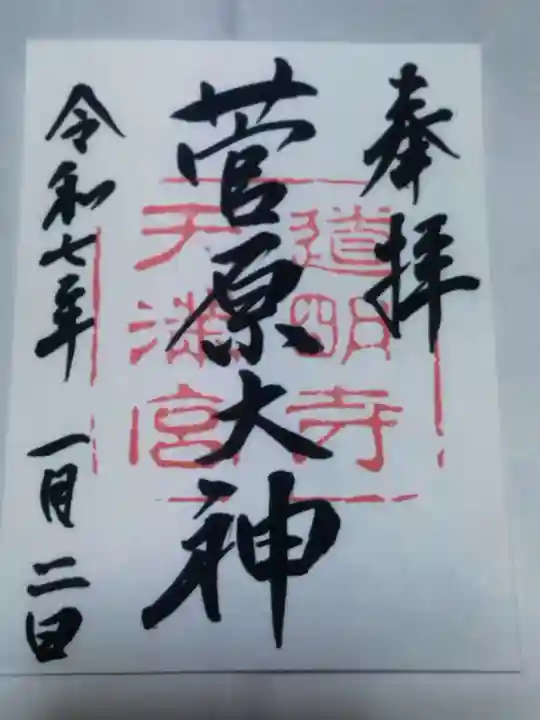 奉拝
道明寺
天満宮
菅原大神
令和七年
一月二日